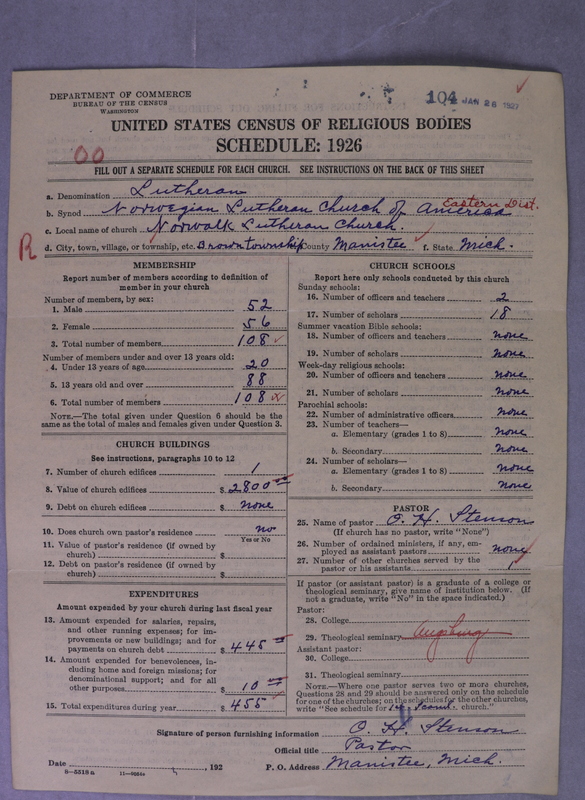 DEPARTMENT OF COMMERCE
BUREAU OF THE CENSUS
WASHINGTON
104 JAN 26 1927
UNITED STATES CENSUS OF RELIGIOUS BODIES
SCHEDULE: 1926
00
FILL OUT A SEPARATE SCHEDULE FOR EACH CHURCH. SEE INSTRUCTIONS ON THE BACK OF THIS SHEET
a. Denomination Lutheran
b. Synod Norwegian Lutheran Church of America Eastern Dist.
c. Local name of church Norwalk Lutheran Church.
R d. City, town, village, or township, etc. Brown township County Manistee f. State Mich.
MEMBERSHIP
Report number of members according to definition of
member in your church
Number of members, by sex:
1. Male 52
2. Female 56
3. Total number of members 108
Number of members under and over 13 years old:
4. Under 13 years of age 20
5. 13 years old and over 88
6. Total number of members 108
NOTE.—The total given under Question 6 should be the
same as the total of males and females given under Question 3.
CHURCH BUILDINGS
See instructions, paragraphs 10 to 12
7. Number of church edifices 1
8. Value of church edifices $ 2800 00
9. Debt on church edifices $ none
10. Does church own pastor's residence no
Yes or No
11. Value of pastor's residence (if owned by
church) $
12. Debt on pastor's residence (if owned by
church) $
EXPENDITURES
Amount expended by your church during last fiscal year
13. Amount expended for salaries, repairs,
and other running expenses; for im-
provements or new buildings; and for
payments on church debt $ 445
14. Amount expended for benevolences, in-
cluding home and foreign missions; for
denominational support; and for all
other purposes $ 10
15. Total expenditures during year $ 455
CHURCH SCHOOLS
Report here only schools conducted by this church
Sunday schools:
16. Number of officers and teachers 2
17. Number of scholars 18
Summer vacation Bible schools:
18. Number of officers and teachers none
19. Number of scholars none
Week-day religious schools:
20. Number of officers and teachers none
21. Number of scholars none
Parochial schools:
22. Number of administrative officers none
23. Number of teachers—
a. Elementary (grades 1 to 8) none
b. Secondary none
24. Number of scholars—
a. Elementary (grades 1 to 8) none
b. Secondary none
PASTOR
25. Name of pastor O. H. Stenson
(If church has no pastor, write "None")
26. Number of ordained ministers, if any, em-
ployed as assistant pastors none
27. Number of other churches served by the
pastor or his assistants 1
If pastor (or assistant pastor) is a graduate of a college or
theological seminary, give name of institution below. (If
not a graduate, write "No" in the space indicated.)
Pastor:
28. College
29. Theological seminary Augsburg
Assistant pastor:
30. College
31. Theological seminary
NOTE.—Where one pastor serves two or more churches,
Questions 28 and 29 should be answered only on the schedule
for one of the churches; on the schedules for the other churches,
write "See schedule for church."
Signature of person furnishing information O. H. Stenson
Official title Pastor
Date , 192 P. O. Address Manistee, Mich.
8-5518a